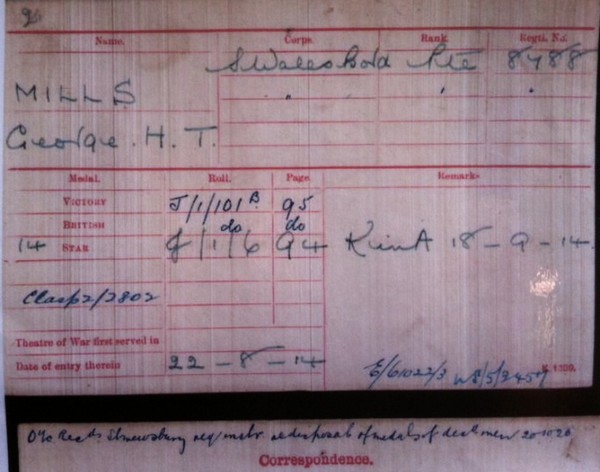 Name. Corps. Rank. Regtl. No.
S Wales Bord Pte 8488
MILLS
George. H. T.
Medal. Roll. Page. Remarks
VICTORY J/1/101 B 95
BRITISH do do
14 STAR J/1/6 94 K in A 18-9-14.
Clasp 2/2802
Theatre of War first served in
Date of entry therein 22-8-14
E/61022/3 K 1380.
O i/c Recds Shrewsbury req instr re disposal of medals of dec'd men 20
Correspondence.